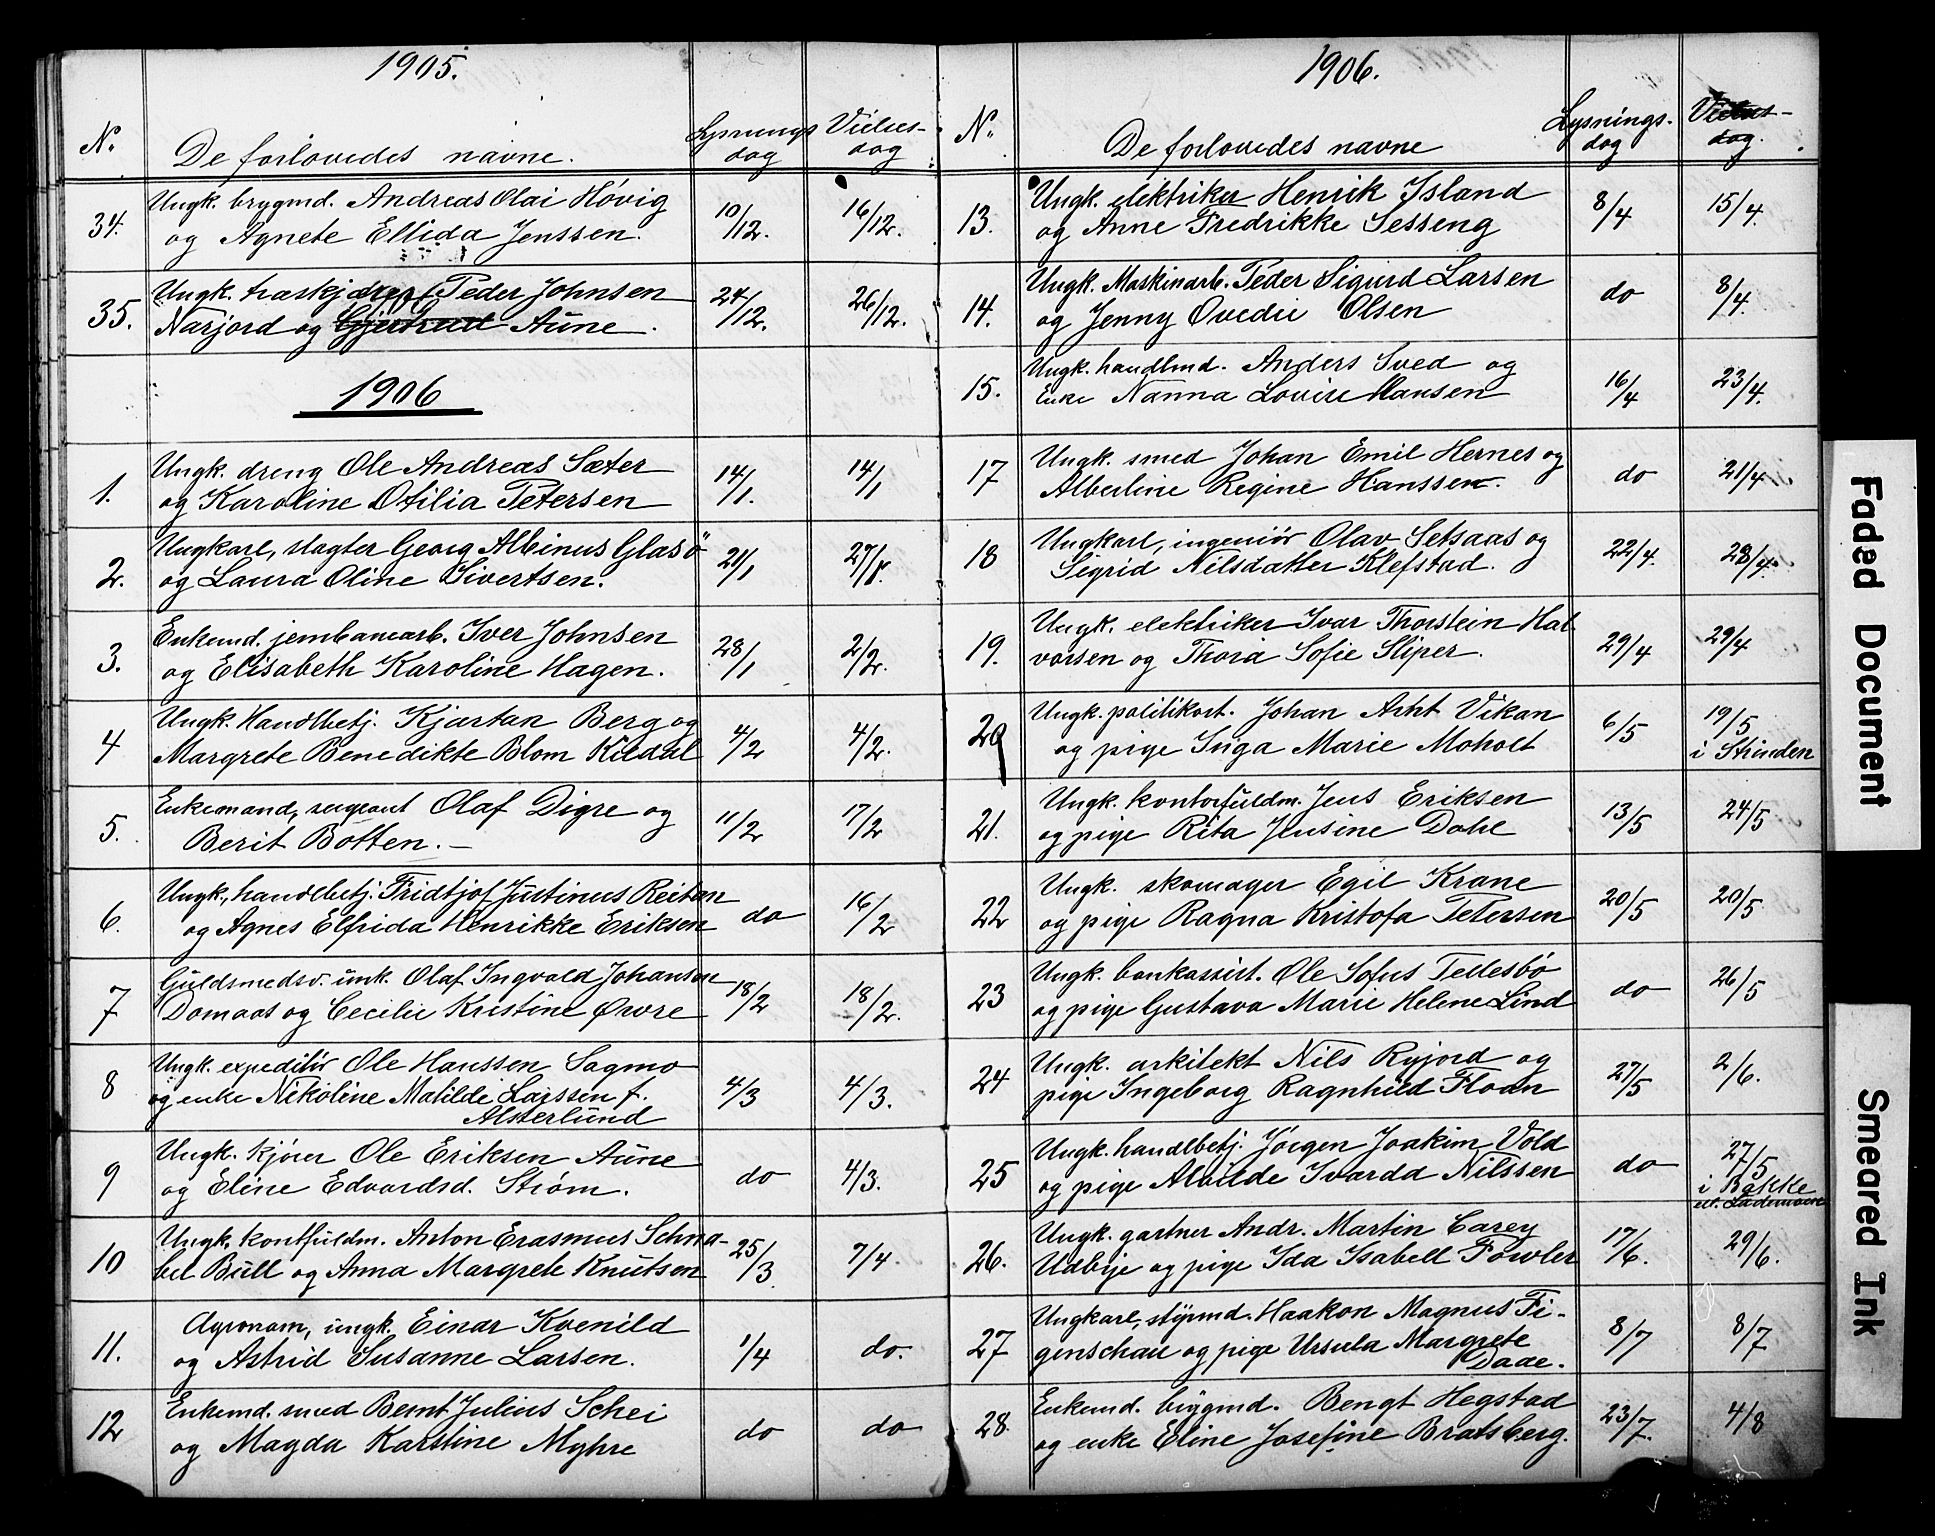 1905.
N. De forlovedes navne. Lysnings dag Vielses- dag
34. Ungk. brygmd. Andreas Olai Hövig 10/12. 16/12.
og Agnete Ellida Jenssen.
35. Ungk. træskjærer Peder Johnsen 24/12. 26/12.
Narjord og Gjertrud Aune.
1906
1. Ungk. dreng Ole Andreas Sæter 14/1. 14/1
og Karoline Otilia Petersen
2. Ungkarl, slagter Georg Albinus Glasö 21/1 27/1.
og Laura Oline Sivertsen.
3. Enkemd. jernbanearb. Iver Johnsen 28/1 2/2.
og Elisabeth Karoline Hagen.
4 Ungk. Handlbetj. Kjartan Berg og 4/2 4/2.
Margrete Benedikte Blom Kildal
5. Enkemand, sergeant Olaf Digre og 11/2 17/2
Berit Botten. –
6. Ungk., handlbetj. Fridtjof Justinus Reitan do 16/2
og Agnes Elfrida Henrikke Eriksen
7 Guldsmedsv. unk. Olaf Ingvald Johansen 18/2 18/2.
Domaas og Cecilie Kristine Øwre
8 Ungk. expeditör Ole Hanssen Sagmo 4/3 4/3.
og enke Nikoline Matilde Larssen f.
Alsterlund
9 Ungk. kjører Ole Eriksen Aune do 4/3.
og Eline Edvardsd. Strøm.
10 Ungk. kontfuldm. Anton Erasmus Schna- 25/3 7/4.
bel Bull og Anna Margrete Knutsen
11. Agronom, ungk. Einar Kvenild 1/4 do.
og Astrid Susanne Larsen.
12 Enkemd. smed Bernt Julius Schei do do
og Magda Karstine Myhre
1906.
N. De forlovedes navne Lysnings- dag Vielses- dag.
13. Ungk. elektriker Henrik Island 8/4 15/4.
og Anne Fredrikke Sesseng
14. Ungk. Maskinarb. Peder Sigurd Larsen do 8/4.
og Jenny Ovedie Olsen
15. Ungk. handlmd. Anders Sved og 16/4 23/4.
Enke Nanna Lovise Hansen
17 Ungk. smed Johan Emil Hernes og do 21/4
Albertine Regine Hanssen.
18 Ungkarl, ingeniör Olav Setsaas og 22/4. 28/4.
Sigrid Nilsdatter Klefstad.
19. Ungk. elektriker Ivar Thorstein Hal- 29/4 29/4
vorsen og Thora Sofie Sliper.
20 Ungk. politikost. Johan Arnt Vikan 6/5 19/5
og pige Inga Marie Moholt i Strinden
21. Ungk. kontorfuldm. Jens Eriksen 13/5 24/5
og pige Rita Jensine Dahl
22 Ungk. skomager Egil Krane 20/5 20/5.
og pige Ragna Kristofa Petersen
23 Ungk. bankassist. Ole Sofus Tellesbö do 26/5
og pige Gustava Marie Helene Lind
24 Ungk. arkitekt Nils Ryjord og 27/5 2/6.
pige Ingeborg Ragnhild Floan
25 Ungk. handlbetj. Jörgen Joakim Vold do 27/5
og pige Alvilde Ivarda Nilssen i Bakke
el. Lademoen
26. Ungk. gartner Andr. Martin Carey 17/6. 29/6.
Udbye og pige Ida Isabell Fowler
27 Ungkarl, styrmd. Haakon Magnus Fi- 8/7 8/7
genschau og pige Ursula Margrete
Daae.
28. Enkemd. bygmd. Bengt Hegstad 23/7. 4/8
og enke Eline Josefine Bratsberg.
Faded Document
Smeared Ink